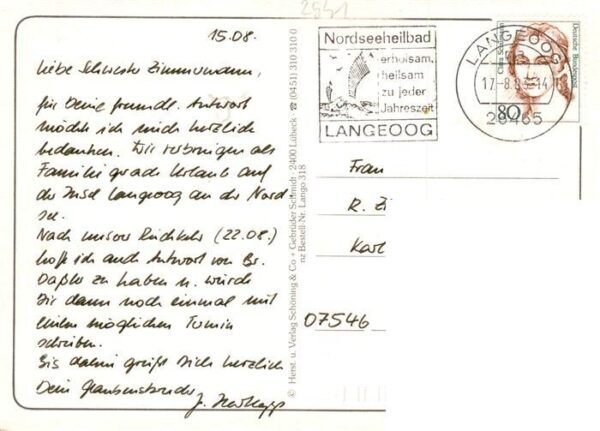 2831
15.08.
Liebe Schwester Zimmermann,
für Deine freundl. Antwort
möchte ich mich herzlich
bedanken. Wir verbringen als
Familie gerade Urlaub auf
der Insel Langeoog an der Nord
see.
Nach unserer Rückkehr (22.08.)
hoffe ich auch Antwort von Br.
Daßler zu haben u. würde
Dir dann noch einmal mit
einem möglichen Termin
schreiben.
Bis dahin grüßt Dich herzlich
Dein Glaubensbruder
J.
© Herst. u. Verlag Schöning & Co + Gebrüder Schmidt · 2400 Lübeck · ☎ (0451) 310 310 0
nz Bestell-Nr. Lango 318
Nordseeheilbad
erholsam,
heilsam
zu jeder
Jahreszeit
LANGEOOG
LANGEOOG
17.-8.8 -14
26465
Deutsche Bundespost
80
Frau
R. Zi
Karl
07546